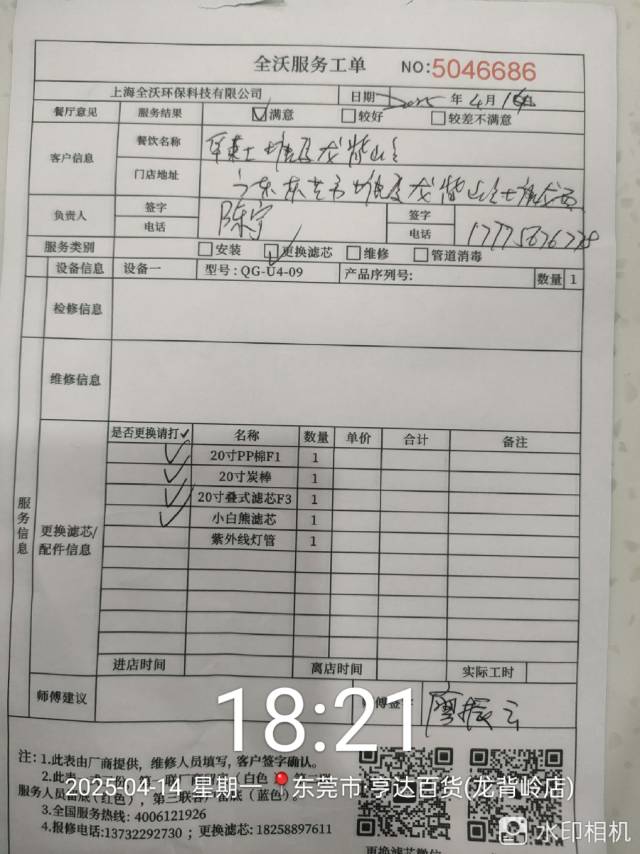 全沃服务工单 NO:5046686
上海全沃环保科技有限公司 日期 2025 年 4月
餐厅意见 服务结果 ☑满意 □较好 □较差不满意
客户信息 餐饮名称
门店地址 广东东莞市塘厦龙背岭
负责人 签字 陈宇 签字
电话 电话
服务类别 □安装 ☑更换滤芯 □维修 □管道消毒
设备信息 设备一 型号:QG-U4-09 产品序列号: 数量 1
检修信息
维修信息
服务信息
更换滤芯/配件信息
是否更换请打✓ 名称 数量 单价 合计 备注
✓ 20寸PP棉F1 1
✓ 20寸炭棒 1
✓ 20寸叠式滤芯F3 1
✓ 小白熊滤芯 1
紫外线灯管 1
进店时间 离店时间 实际工时
师傅建议 廖振云
18:21
注:1.此表由厂商提供,维修人员填写,客户签字确认。
2025-04-14 星期一 东莞市·亨达百货(龙背岭店)
服务人员留底(红色),第三联客户留底(蓝色)。
3.全国服务热线: 4006121926
4.报修电话:13732292730;更换滤芯: 18258897611
水印相机